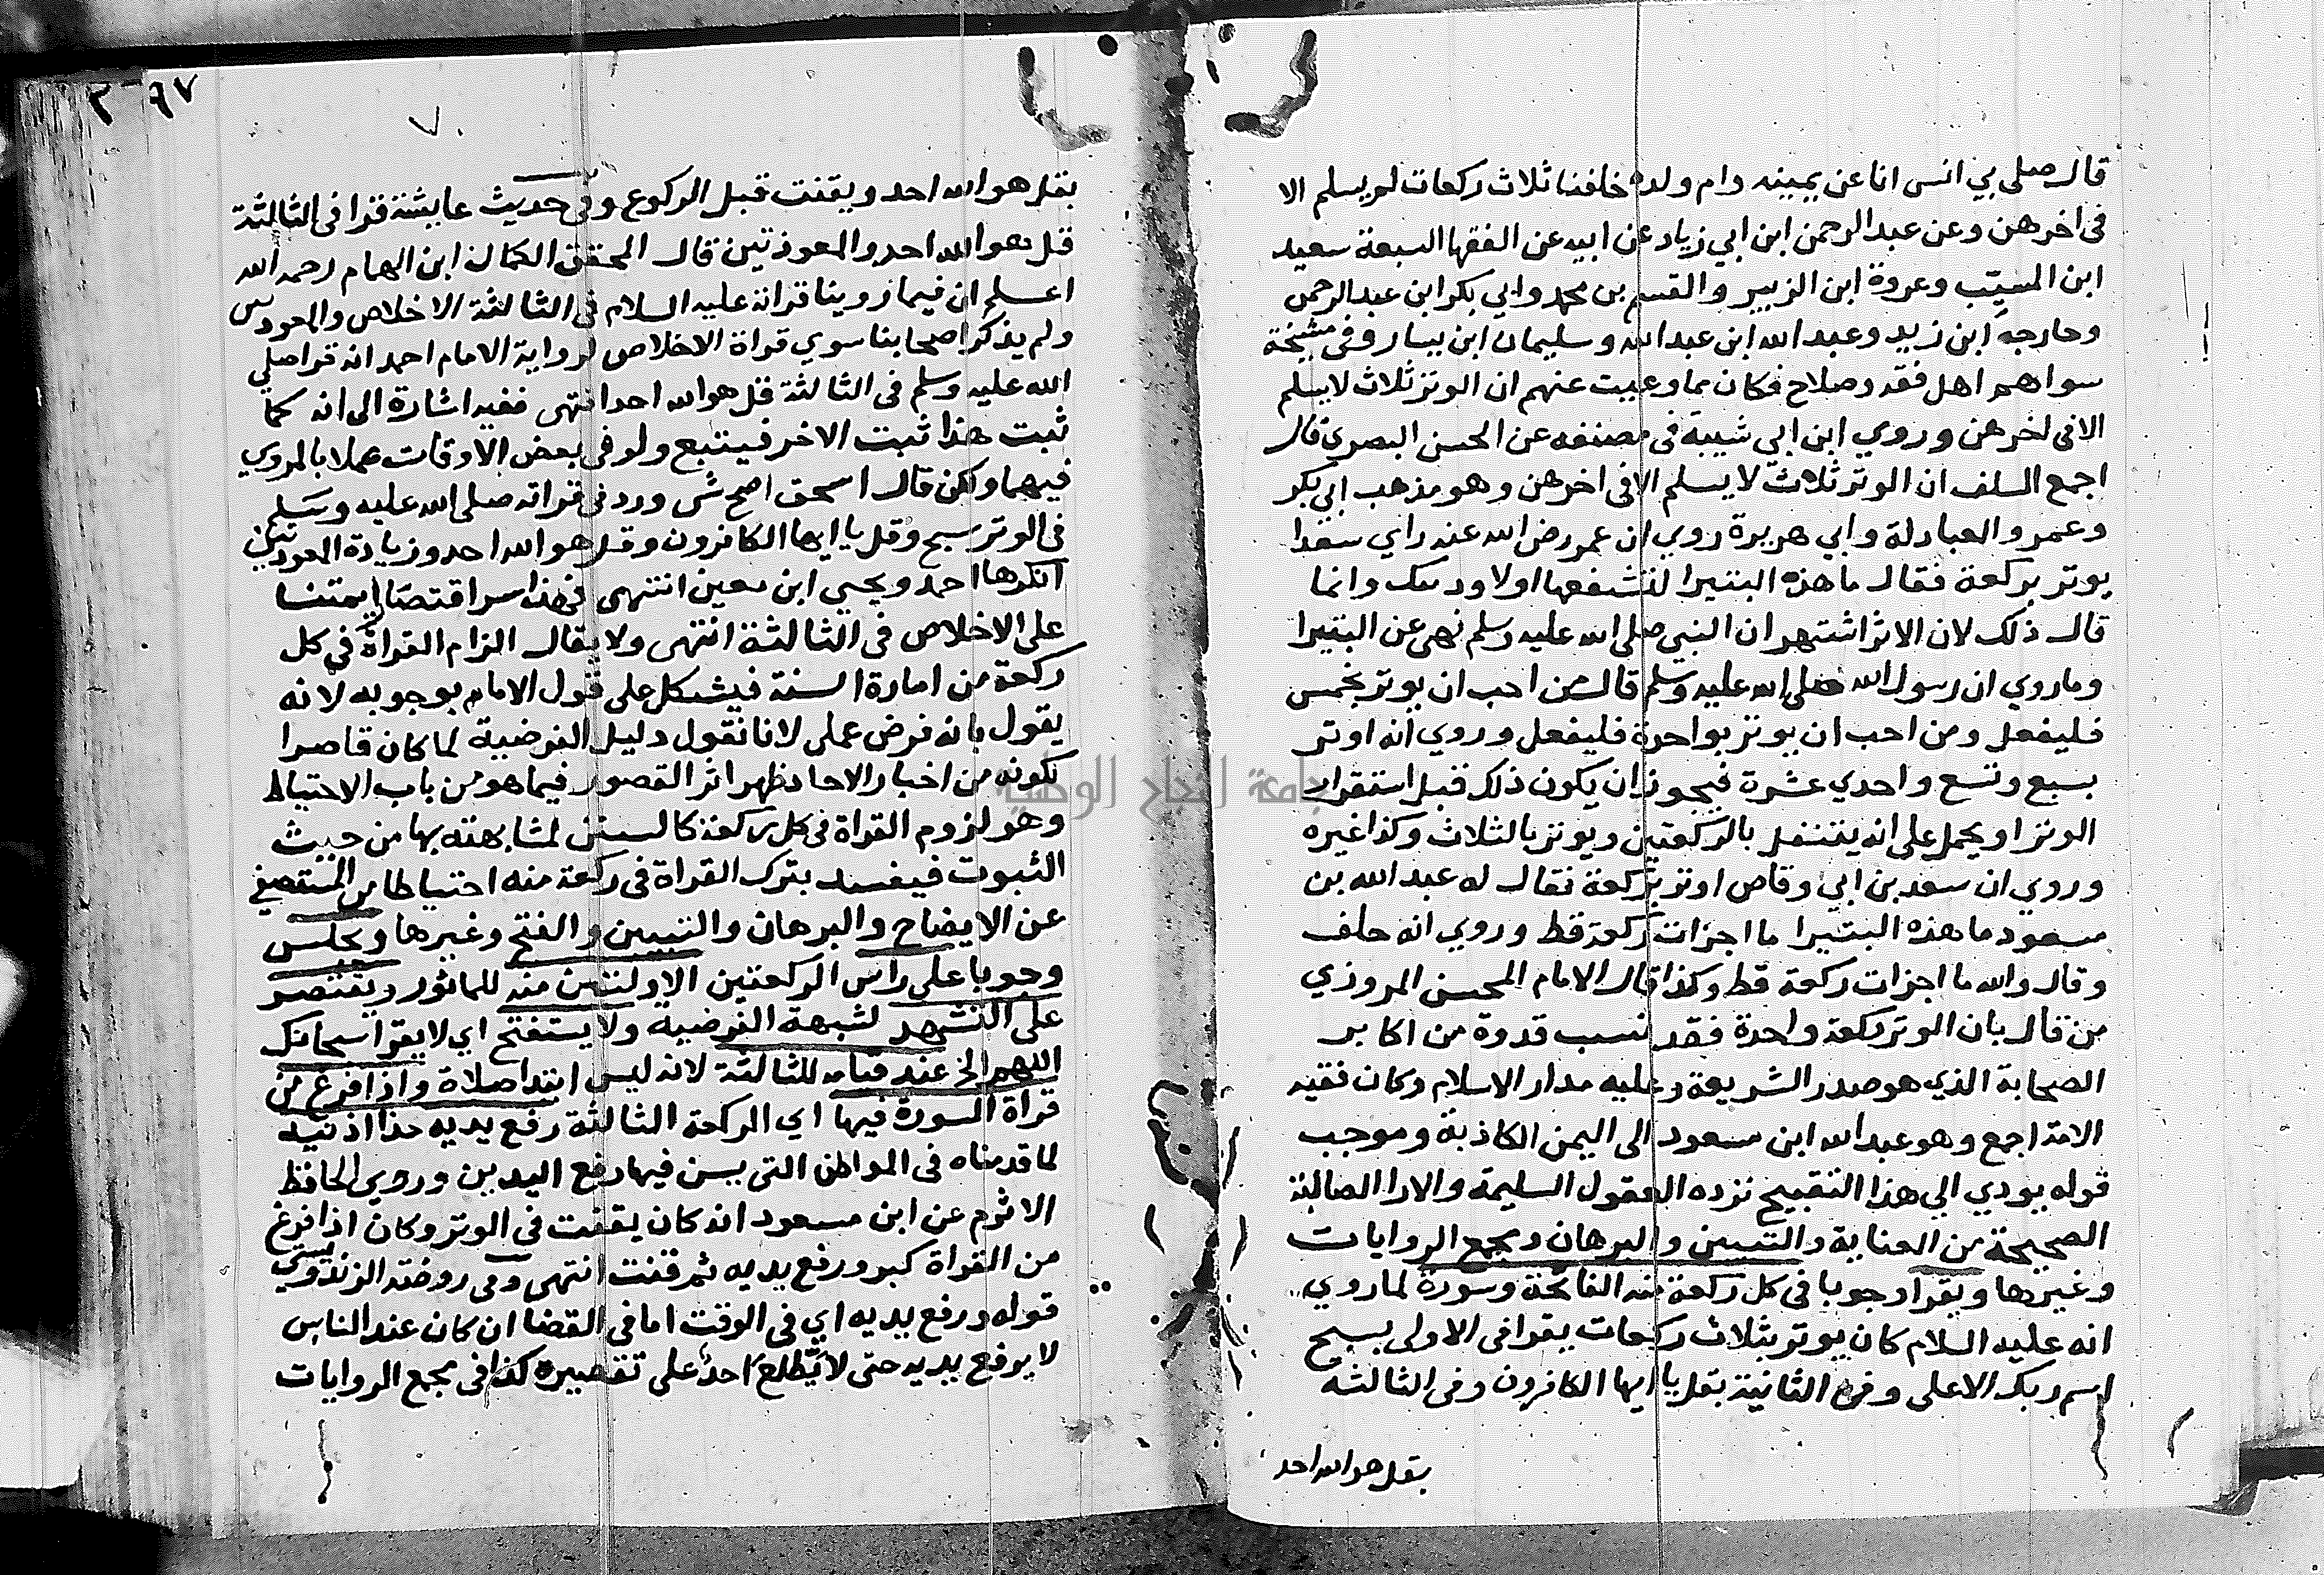 قال صلى بي انس انا عن يمينه وام ولده خلفنا ثلاث ركعات لم يسلم الا
فى اخرهن وعن عبد الرحمن ابن ابي زياد عن ابيه عن الفقها السبعة سعيد
ابن المسيّب وعروة ابن الزبير والقسم بن محمد وابي بكر ابن عبد الرحمن
وخارجة ابن زيد وعبد الله ابن عبد الله وسليمان ابن يسار وفى مشيخة
سواهم اهل فقه وصلاح فكان مما وعيت عنهم ان الوتر ثلاث لا يسلم
الا فى اخرهن وروي ابن ابي شيبة فى مصنفه عن الحسن البصري قال
اجمع السلف ان الوتر ثلاث لا يسلم الا فى اخرهن وهو مذهب ابي بكر
وعمر والعبادلة وابي هريرة روي ان عمر رضى الله عنه راي سعدا
يوتر بركعة فقال ما هذه البتيرا لتشفعها او لاودبنك وانما
قال ذلك لان الاثر اشتهر ان النبي صلى الله عليه وسلم نهى عن البتيرا
وما روي ان رسول الله صلى الله عليه وسلم قال من احب ان يوتر بخمس
فليفعل ومن احب ان يوتر بواحدة فليفعل وروي انه اوتر
بسبع وتسع واحدي عشرة فيجوز ان يكون ذلك قبل استقرار
الوتر او يحمل على انه يتنفل بالركعتين ويوتر بالثلاث وكذا غيره
وروي ان سعد بن ابي وقاص اوتر بركعة فقال له عبد الله بن
مسعود ما هذه البتيرا ما اجزات ركعة قط وروي انه حلف
وقال والله ما اجزات ركعة قط وكذا قال الامام المحسن المروزي
من قال بان الوتر ركعة واحدة فقد نسب قدوة من اكابر
الصحابة الذي هو صدر الشريعة وعليه مدار الاسلام وكان فقيه
الامة اجمع وهو عبد الله ابن مسعود الى اليمن الكاذبة وموجب
قوله يودي الي هذا التقبيح ترده العقول السليمة والارا الصالبة
الصحيحة من العناية والتبيين والبرهان ومجمع الروايات
وغيرها ويقرا وجوبا فى كل ركعة منه الفاتحة وسورة لما روي
انه عليه السلام كان يوتر بثلاث ركعات يقرا فى الاولى بسبح
اسم ربك الاعلى وفى الثانية بقل يا ايها الكافرون وفى الثالثه
بقل هو الله احد
٢٩٧
٧
بقل هو الله احد ويقنت قبل الركوع وفى حديث عايشة قرا فى الثالثة
قل هو الله احد والمعوذتين قال المحقق الكمال ابن الهمام رحمه الله
اعلم ان فيما روينا قراته عليه السلام فى الثالثة الاخلاص والمعوذتين
ولم يذكر اصحابنا سوي قراة الاخلاص لرواية الامام احمد انه قرا صلي
الله عليه وسلم فى الثالثة قل هو الله احد انتهى ففيه اشارة الى انه كما
ثبت هذا ثبت الاخر فيتبع ولو فى بعض الاوقات عملا بالمروي
فيهما ولكن قال اسحق اصح شى ورد فى قراته صلى الله عليه وسلم
فى الوتر سبح وقل يا ايها الكافرون وقل هو الله احد وزيادة المعوذتين
انكرها احمد ويحيي ابن معين انتهى فهذا سر اقتصار ايمتنا
على الاخلاص فى الثالثة انتهى ولا يقال الزام القراة في كل
ركعة من امارة السنة فيشكل على قول الامام بوجوبه لانه
يقول بانه فرض عملى لانا نقول دليل الفرضية لما كان قاصرا
لكونه من اخبار الاحاد ظهر اثر القصور فيما هو من باب الاحتياط
وهو لزوم القراة فى كل ركعة كالسنن لمشابهته بها من حيث
الثبوت فيفسد بترك القراة فى ركعة منه احتياطا من المستصفي
عن الايضاح والبرهان والتبيين والفتح وغيرها ويجلس
وجوبا على راس الركعتين الاولتين منه للماثور ويقتصر
على التشهد لشبهة الفرضية ولا يستفتح اي لا يقرا سبحانك
اللهم الخ عند قيامه للثالثة لانه ليس ابتدا صلاة واذا فرغ من
قراة السورة فيها اي الركعة الثالثة رفع يديه حذا اذنيه
لما قدمناه فى المواطن التى يسن فيها رفع اليدين وروي الحافظ
الاثرم عن ابن مسعود انه كان يقنت فى الوتر وكان اذا فرغ
من القراة كبر ورفع يديه ثم قنت انتهى وفى روضة الزندويستي
قوله ورفع يديه اي فى الوقت اما فى القضا ان كان عند الناس
لا يرفع يديه حتى لا يطلع احد على تقصيره كذا فى مجمع الروايات
جامعة النجاح الوطنية